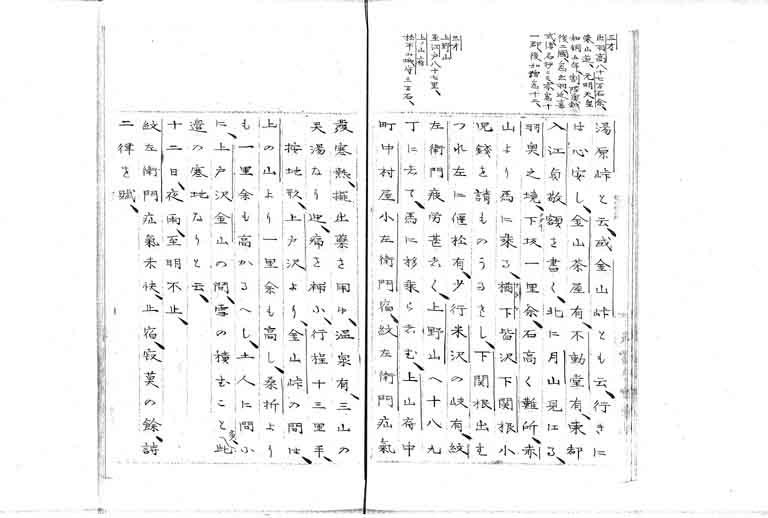 三才
出羽高八十七万石余、
東山道、元明天皇
和銅五年、割陸奥越
後二國、為出羽、延喜
一郡後加
三才
上野ノ山
至江戸八十七里、
上ノ山ノ府
松平山城守三万石、
湯原峠と云、或金山峠とも云、行きに
は心安し、金山茶屋有、不動堂有、東都
入江貞敬額を書く、北に月山見はる
羽奥之境、下坂一里余、石高く難所、赤
山より馬に乗る、楢下皆沢下関根小
児銭を請ものうるさし、下関根出
つれ左に便松有、少行米沢の岐有、紋
左衛門疲労甚しく上野山へ十八九
丁に至て馬に移乗らしむ、上山府中
町中村屋小左衛門宿、紋左衛門疝氣
發寒熱、擺出薬を用ゆ、温泉有、三山の
天湯なり、疝痛を補ふ、行程十三里半、
按地形、上戸沢より金山峠の間は
上の山より一里余も高し、桑折より
も一里余も高かるへし、土人に問ふ
に、上戸沢金山の間、雪の積むこと多、此
邊の寒地なりと云、
十二日、夜雨、至明不止、
紋左衛門疝氣未快、止宿、寂莫の餘、詩
二律を賦、